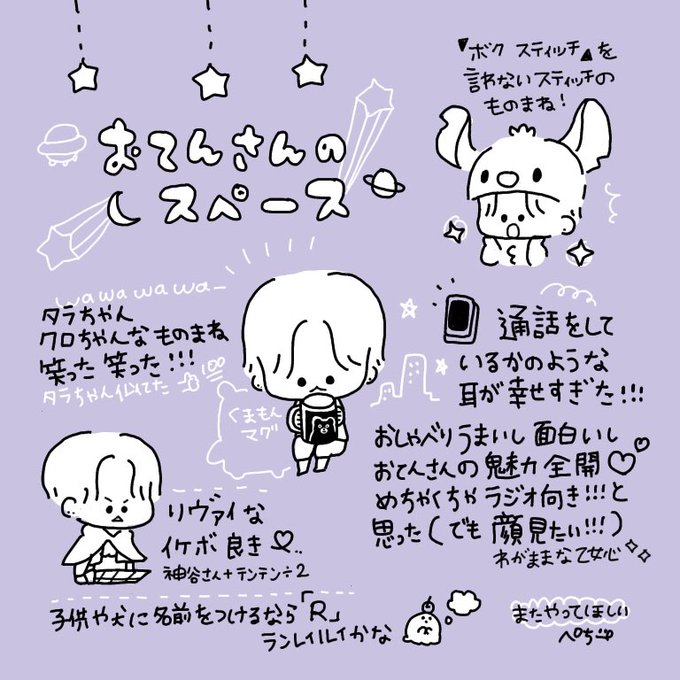 おてんさんの
スペース
『ボク スティッチ』を
言わないスティッチの
ものまね!
wawawawa〜
タラちゃん
クロちゃんなものまね
笑った 笑った!!!
タラちゃん似てた 100
くまもん
マグ
通話をして
いるかのような
耳が幸せすぎた!!!
おしゃべりうまいし 面白いし
おてんさんの魅力全開♡
めちゃくちゃラジオ向き!!!と
思った(でも 顔見たい!!!)
わがままな乙女心
リヴァイな
イケボ良き♡..
神谷さん+テンテン÷2
子供や犬に名前をつけるなら「R」
ランレイルイかな
またやってほしい